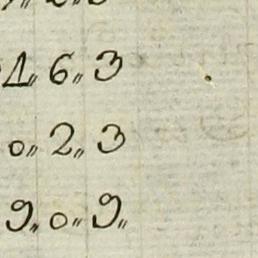 4〃 6〃 3
0〃 2〃 3
9〃 0〃 9〃